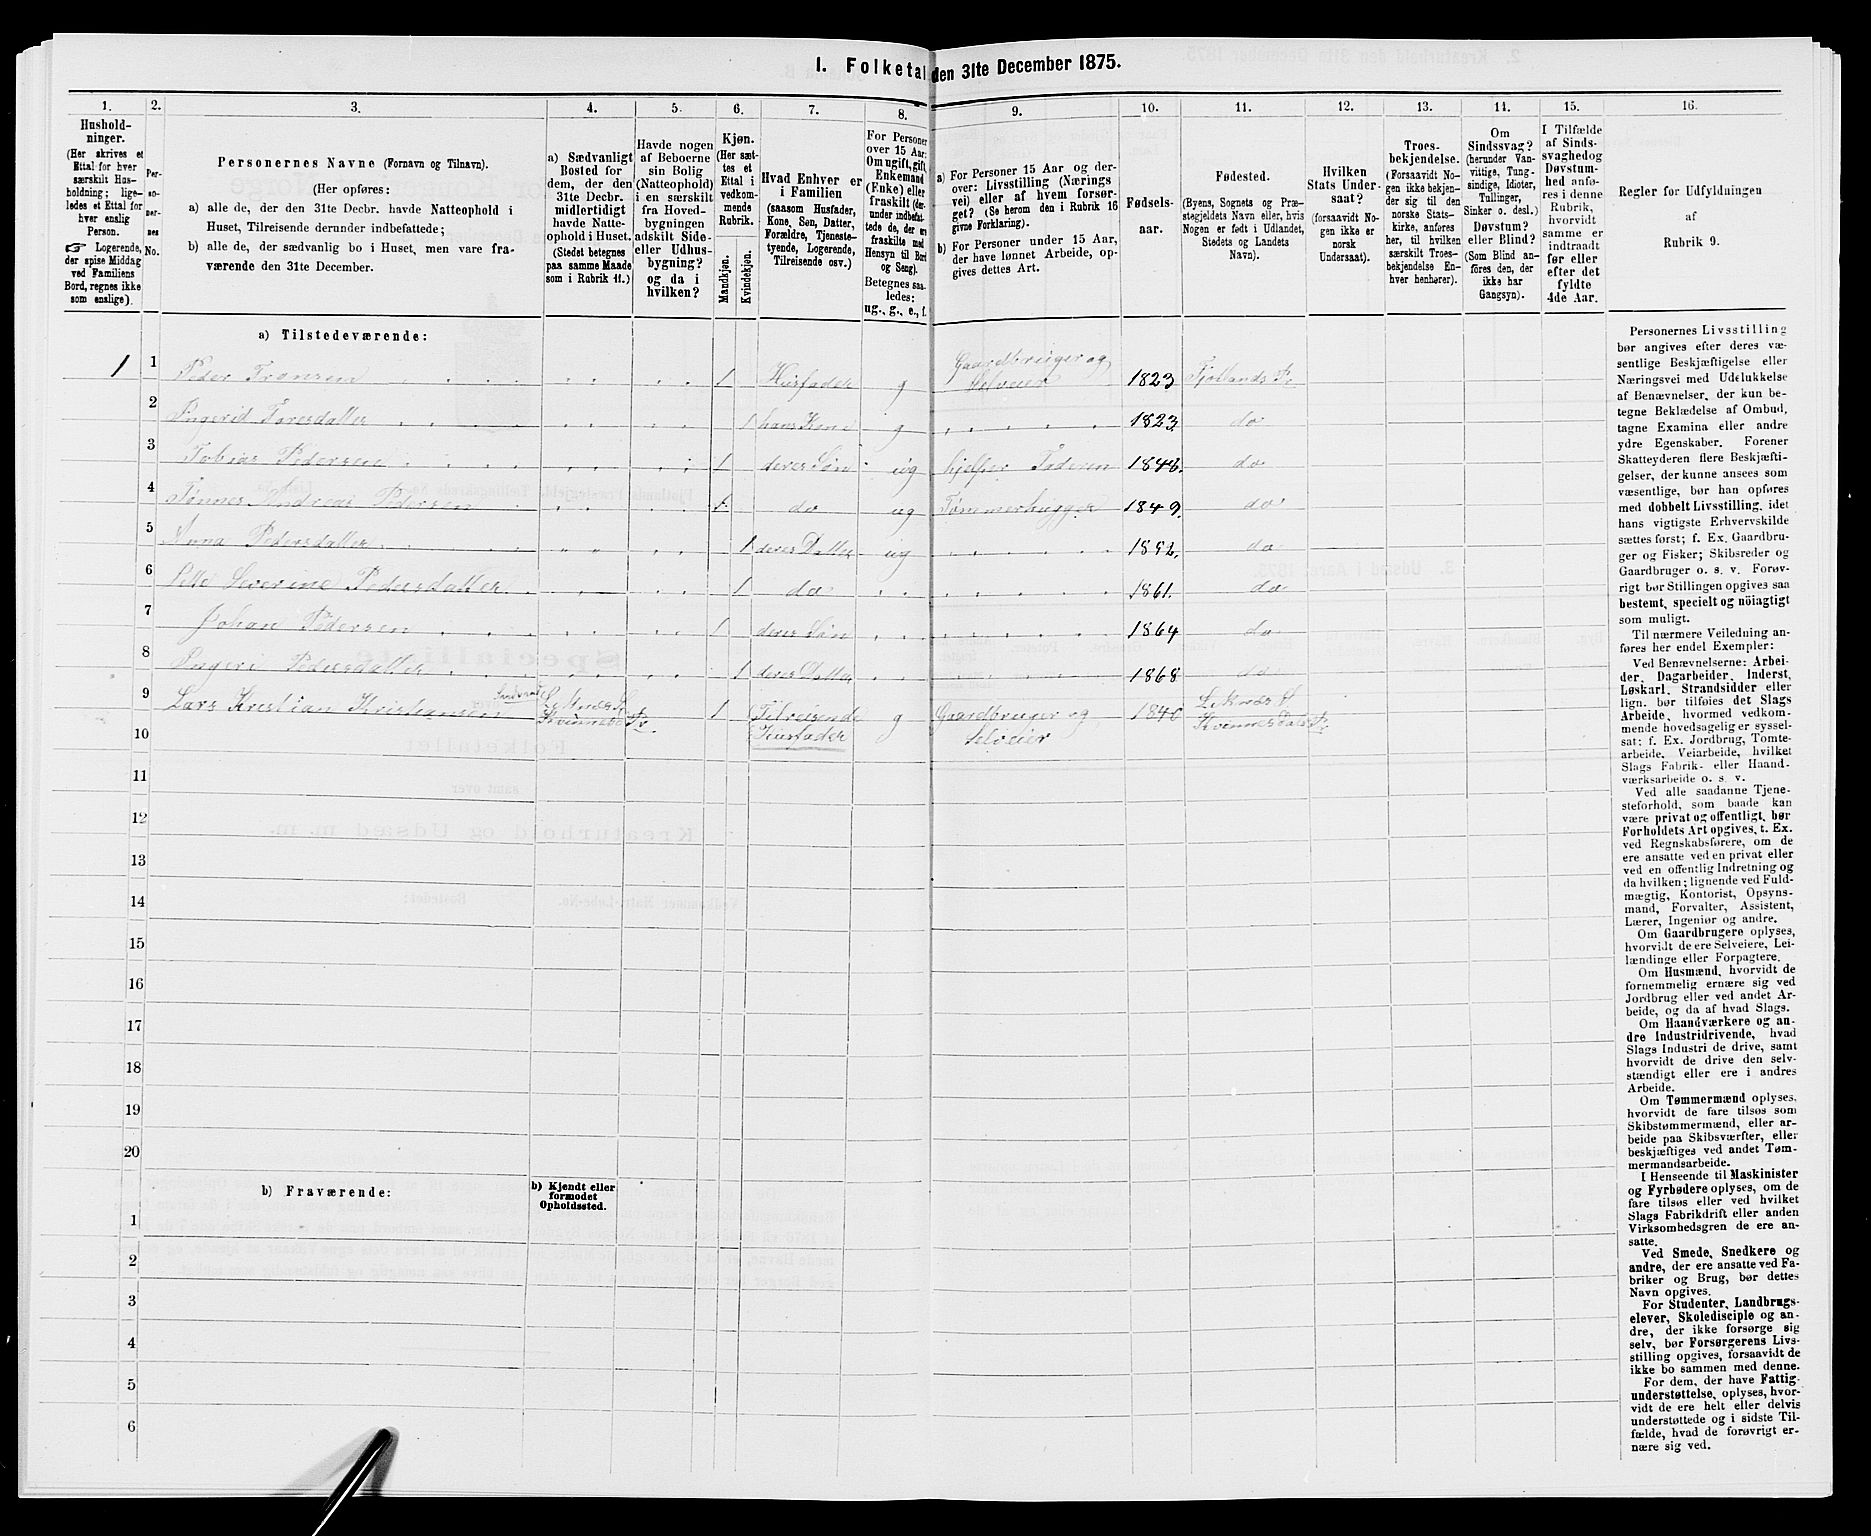 I. Folketal den 31te December 1875.
1. 2. 3. 4. 5. 6. 7. 8. 9. 10. 11. 12. 13. 14. 15. 16.
Hushold-
ninger.
(Her skrives et
Ettal for hver
særskilt Hus-
holdning; lige-
ledes et Ettal for
hver enslig
Person.
☞ Logerende,
der spise Middag
ved Familiens
Bord, regnes ikke
som enslige).
Per-
so-
ner-
nes
No.
Personernes Navne (Fornavn og Tilnavn).
(Her opføres:
a) alle de, der den 31te Decbr. havde Natteophold i
Huset, Tilreisende derunder indbefattede;
b) alle de, der sædvanlig bo i Huset, men vare fra-
værende den 31te December.
a) Sædvanligt
Bosted for
dem, der den
31te Decbr.
midlertidigt
havde Natte-
ophold i Huset.
(Stedet betegnes
paa samme Maade
som i Rubrik 11.)
Havde nogen
af Beboerne
sin Bolig
(Natteophold)
i en særskilt
fra Hoved-
bygningen
adskilt Side-
eller Udhus-
bygning?
og da i
hvilken?
Kjøn.
(Her sæt-
tes et
Ettal i
vedkom-
mende
Rubrik.
Mandkjøn.
Kvindekjøn.
Hvad Enhver er
i Familien
(saasom Husfader,
Kone, Søn, Datter,
Forældre, Tjeneste-
tyende, Logerende,
Tilreisende osv.)
For Personer
over 15 Aar:
Om ugift, gift,
Enkemand
(Enke) eller
fraskilt (der-
under indbefat-
tede de, der ere
fraskilte med
Hensyn til Bord
og Seng).
Betegnes saa-
ledes:
ug., g., e., f.
a) For Personer 15 Aar og der-
over: Livsstilling (Nærings-
vei) eller af hvem forsør-
get? (Se herom den i Rubrik 16
givne Forklaring).
b) For Personer under 15 Aar,
der have lønnet Arbeide, op-
gives dettes Art.
Fødsels-
aar.
Fødested.
(Byens, Sognets og Præ-
stegjeldets Navn eller, hvis
Nogen er født i Udlandet,
Stedets og Landets
Navn).
Hvilken
Stats Under-
saat?
(forsaavidt No-
gen ikke er
norsk
Undersaat).
Troes-
bekjendelse.
(Forsaavidt No-
gen ikke bekjen-
der sig til den
norske Stats-
kirke, anføres
her, til hvilken
særskilt Troes-
bekjendelse En-
hver henhører).
Om
Sindssvag?
(herunder Van-
vittige, Tung-
sindige, Idioter,
Tullinger,
Sinker o. desl.)
Døvstum?
eller Blind?
(Som Blind an-
føres den, der
ikke har
Gangsyn).
I Tilfælde
af Sinds-
svaghed og
Døvstum-
hed anfø-
res i denne
Rubrik,
hvorvidt
samme er
indtraadt
før eller
efter det
fyldte
4de Aar.
Regler for Udfyldningen
af
Rubrik 9.
a) Tilstedeværende:
1 1 Peder Tronsen 1 Husfader g Gaardbruger og Selveier 1823 Fjotlands Pr
2 Ingerid Taresdatter 1 hans Kone g 1823 do
3 Tobias Pedersen 1 deres Søn ug hjelper Faderen 1848 do
4 Tønnes Andreas Pedersen 1 do ug Tømmerhugger 1849 do
5 Anna Pedersdatter 1 deres Datter ug 1852 do
6 Severine Pedersdatter 1 do 1861 do
7 Johan Pedersen 1 deres Søn 1864 do
8 Ingeri Pedersdatter 1 deres Datter 1868 do
9 Lars Kristian Kristiansen 1 Tilreisende g Gaardbruger og
10 Husfader Selveier Kvinnesdals Pr
11
12
13
14
15
16
17
18
19
20
b) Fraværende:
b) Kjendt eller
formodet
Opholdssted.
1
2
3
4
5
6
Personernes Livsstilling
bør angives efter deres væ-
sentlige Beskjæftigelse eller
Næringsvei med Udelukkelse
af Benævnelser, der kun be-
tegne Beklædelse af Ombud,
tagne Examina eller andre
ydre Egenskaber. Forener
Skatteyderen flere Beskjæfti-
gelser, der kunne ansees som
væsentlige, bør han opføres
med dobbelt Livsstilling, idet
hans vigtigste Erhvervskilde
sættes først; f. Ex. Gaardbru-
ger og Fisker; Skibsreder og
Gaardbruger o. s. v. Forøv-
rigt bør Stillingen opgives saa
bestemt, specielt og nöiagtigt
som muligt.
Til nærmere Veiledning an-
føres her endel Exempler:
Ved Benævnelserne: Arbei-
der, Dagarbeider, Inderst,
Løskarl, Strandsidder eller
lign. bør tilføies det Slags
Arbeide, hvormed vedkom-
mende hovedsagelig er syssel-
sat; f. Ex. Jordbrug, Tomte-
arbeide, Veiarbeide, hvilket
Slags Fabrik- eller Haand-
værksarbeide o. s. v.
Ved alle saadanne Tjene-
steforhold, som baade kan
være privat og offentligt, bør
Forholdets Art opgives, t. Ex.
ved Regnskabsførere, om de
ere ansatte ved en privat eller
ved en offentlig Indretning og
da hvilken; lignende ved Fuld-
mægtig, Kontorist, Opsyns-
mand, Forvalter, Assistent,
Lærer, Ingeniør og andre.
Om Gaardbrugere oplyses,
hvorvidt de ere Selveiere, Lei-
lændinge eller Forpagtere.
Om Husmænd, hvorvidt de
fornemmelig ernære sig ved
Jordbrug eller ved andet Ar-
beide, og da af hvad Slags.
Om Haandværkere og an-
dre Industridrivende, hvad
Slags Industri de drive, samt
hvorvidt de drive den selv-
stændigt eller ere i andres
Arbeide.
Om Tømmermænd oplyses,
hvorvidt de fare tilsøs som
Skibstømmermænd, eller ar-
beide paa Skibsværfter, eller
beskjæftiges ved andet Tøm-
mermandsarbeide.
I Henseende til Maskinister
og Fyrbødere oplyses, om de
fare tilsøs eller ved hvilket
Slags Fabrikdrift eller anden
Virksomhedsgren de ere an-
satte.
Ved Smede, Snedkere og
andre, der ere ansatte ved Fa-
briker og Brug, bør dettes
Navn opgives.
For Studenter, Landbrugs-
elever, Skoledisciple og an-
dre, der ikke forsørge sig
selv, bør Forsørgerens Livs-
stilling opgives, forsaavidt de
ikke bo sammen med denne.
For dem, der have Fattig-
understøttelse, oplyses, hvor-
vidt de ere helt eller delvis
understøttede og i sidste Til-
fælde, hvad de forøvrigt er-
nære sig ved.